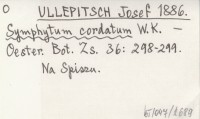 O ULLEPITSCH Josef 1886.
Symphytum cordatum W.K. —
Oester. Bot. Zs. 36: 298-299.
Na Spiszu.